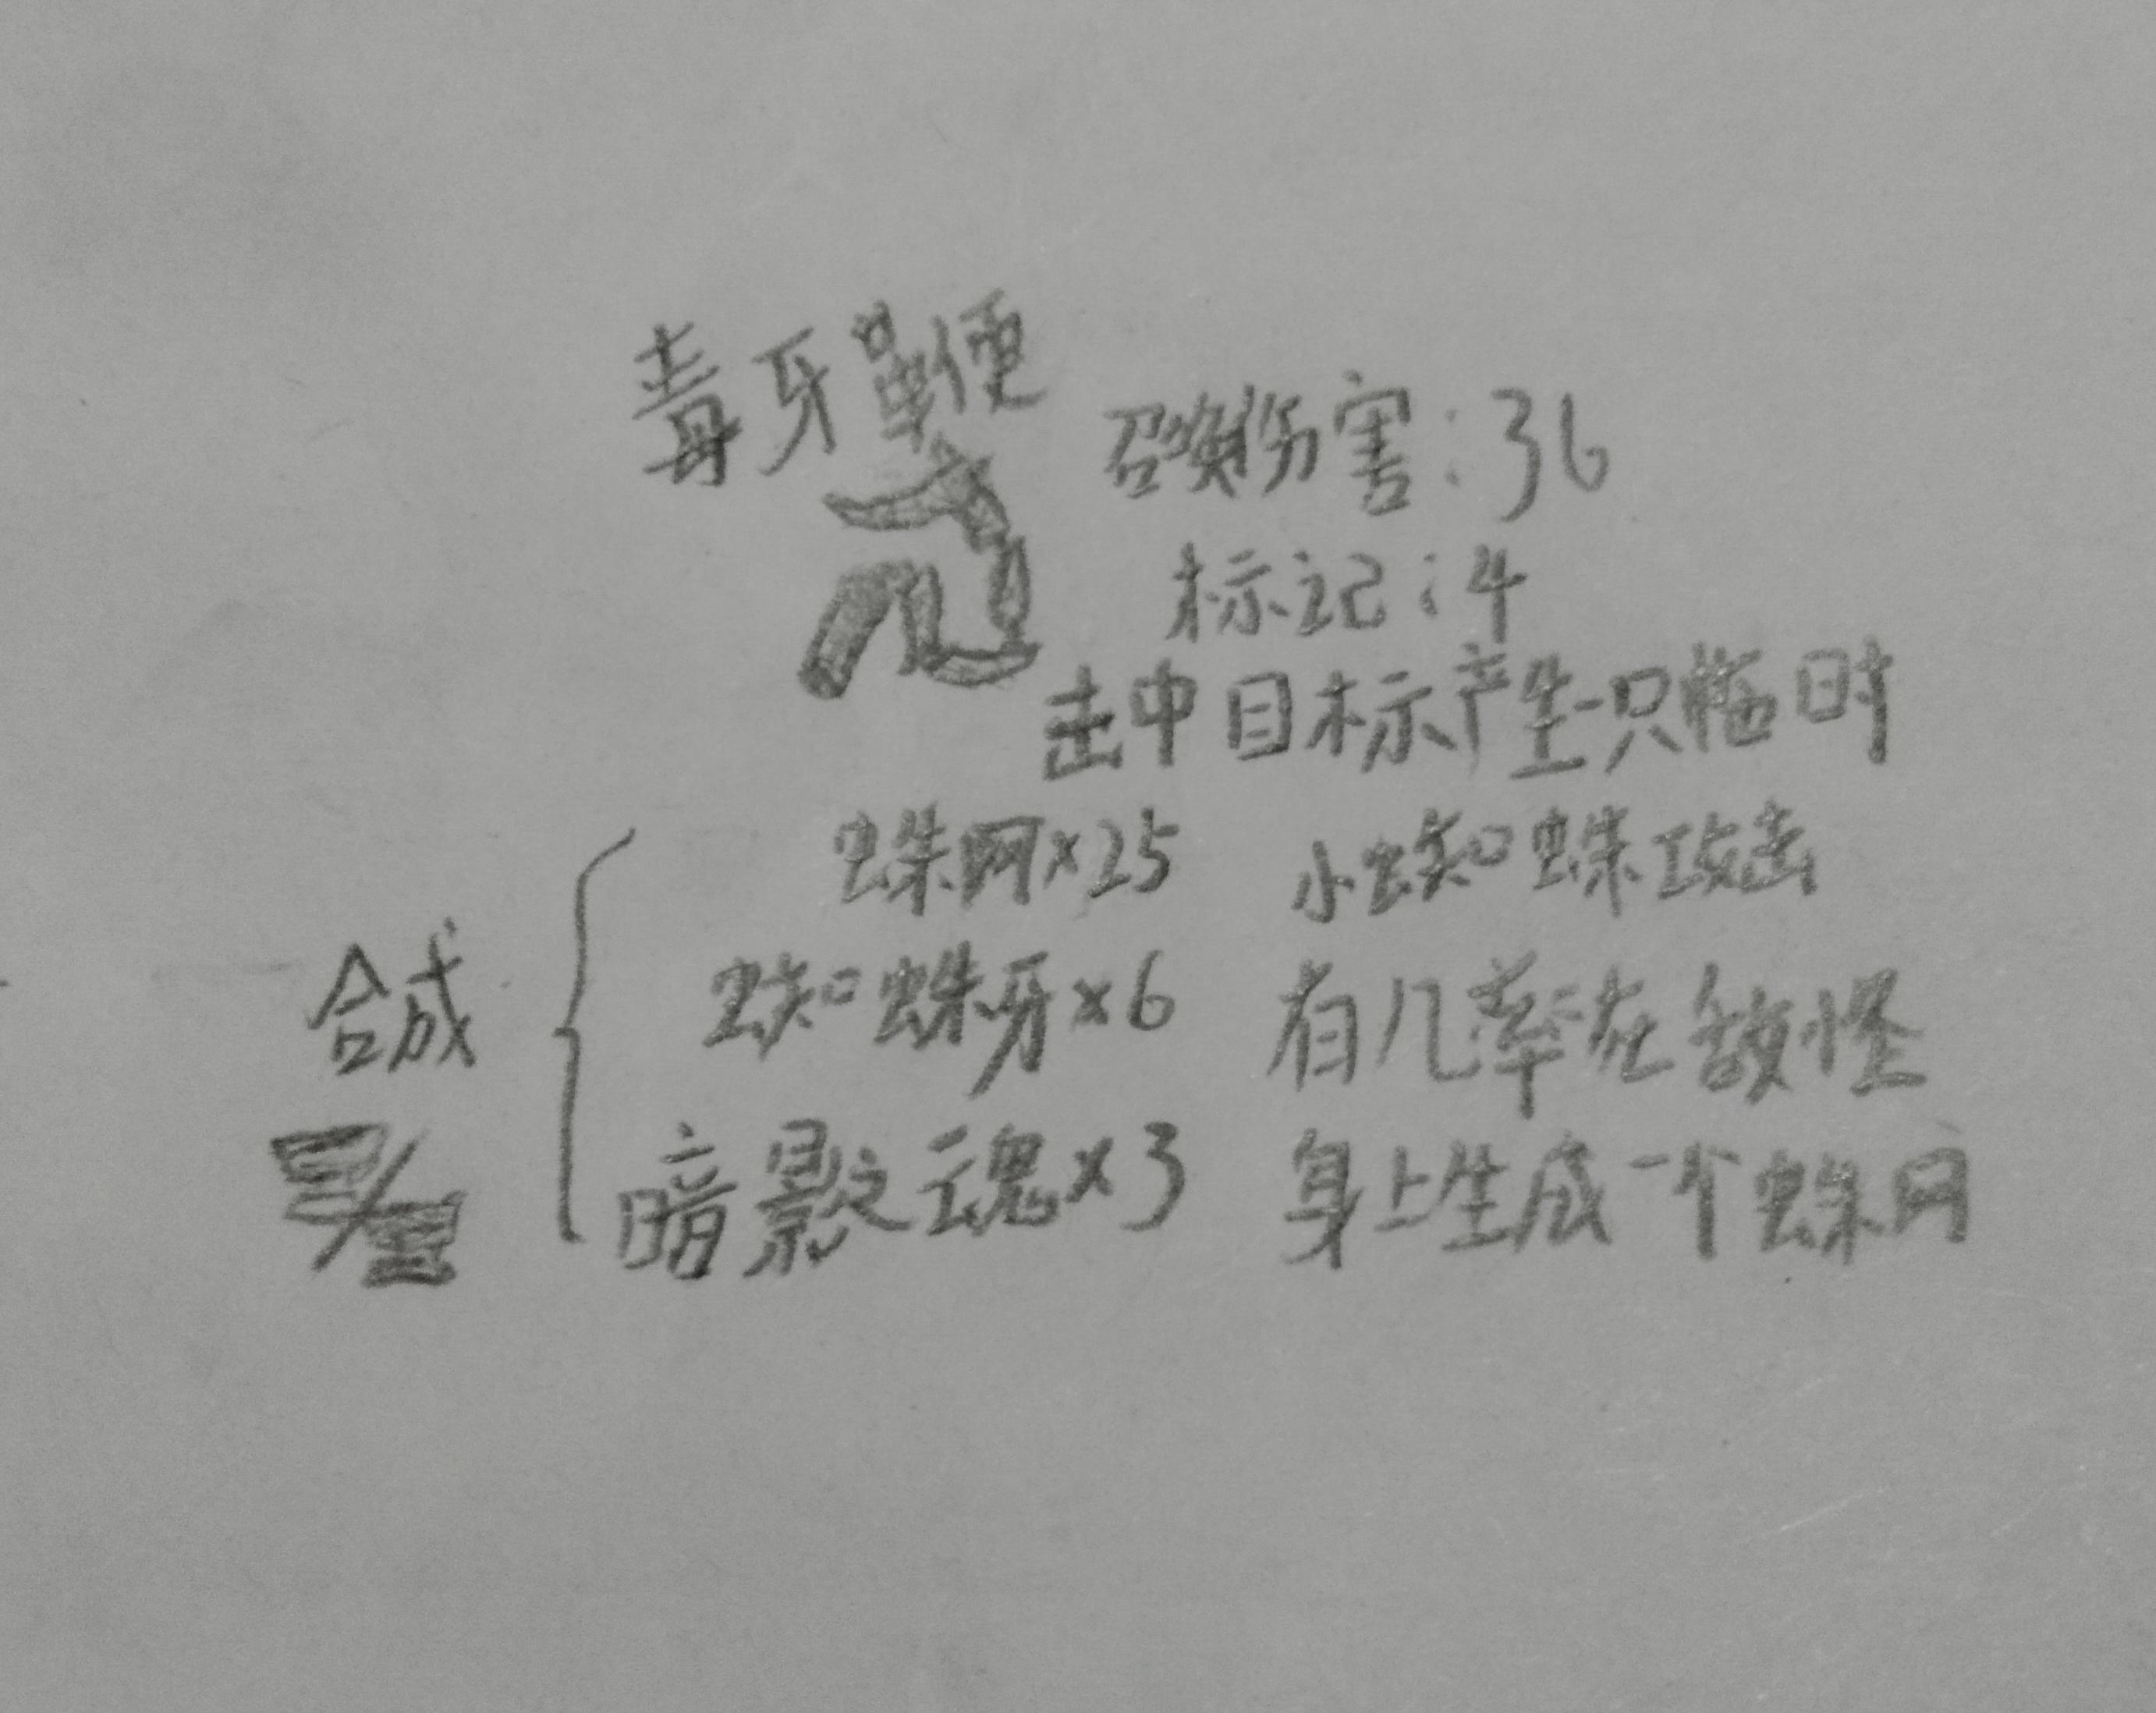 毒牙鞭
召唤伤害:36
标记:4
击中目标产生一只临时
小蜘蛛攻击
有几率在敌怪
身上生成一个蛛网
合成
蛛网×25
蜘蛛牙×6
暗影之魂×3